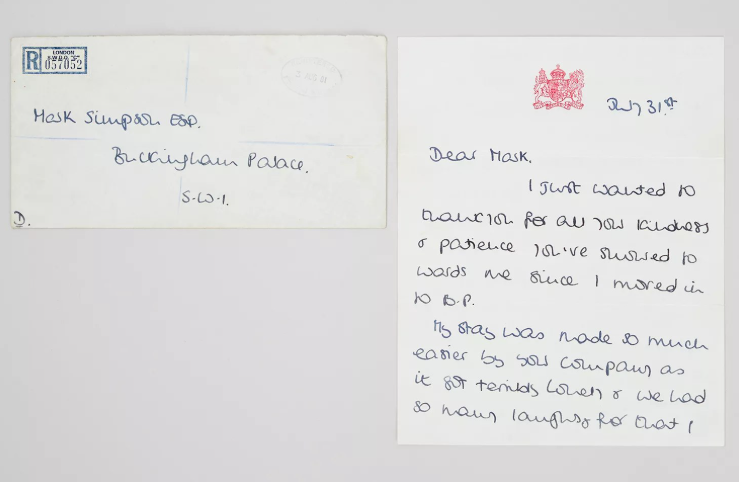 R
LONDON
057052
Mark Simpson ESQ.
Buckingham Palace.
S.W.1.
D.
July 31.st
Dear Mark.
I just wanted to
thank you for all your kindness
& patience you've showed to
wards me since I moved in
to B.P.
My stay was made so much
easier by your company as
it got terribly lonely & we had
so many laughs for that I